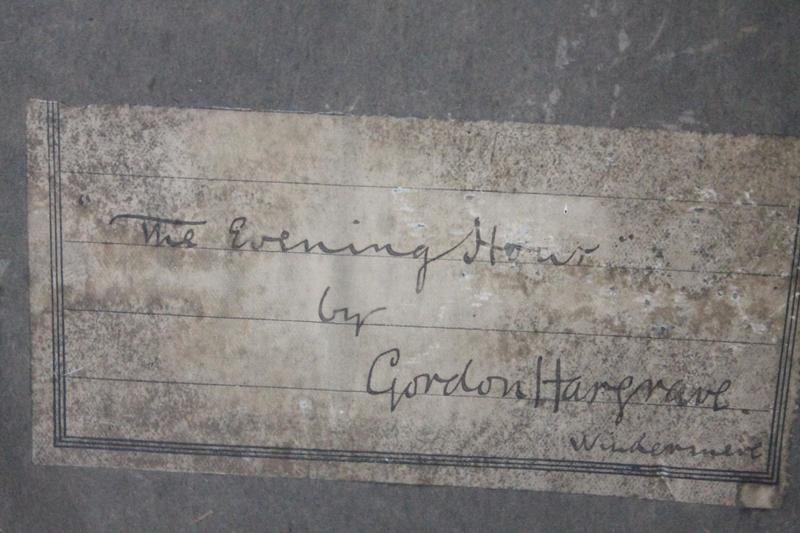 "The Evening Hour"
by
Gordon Hargrave.
Windermere